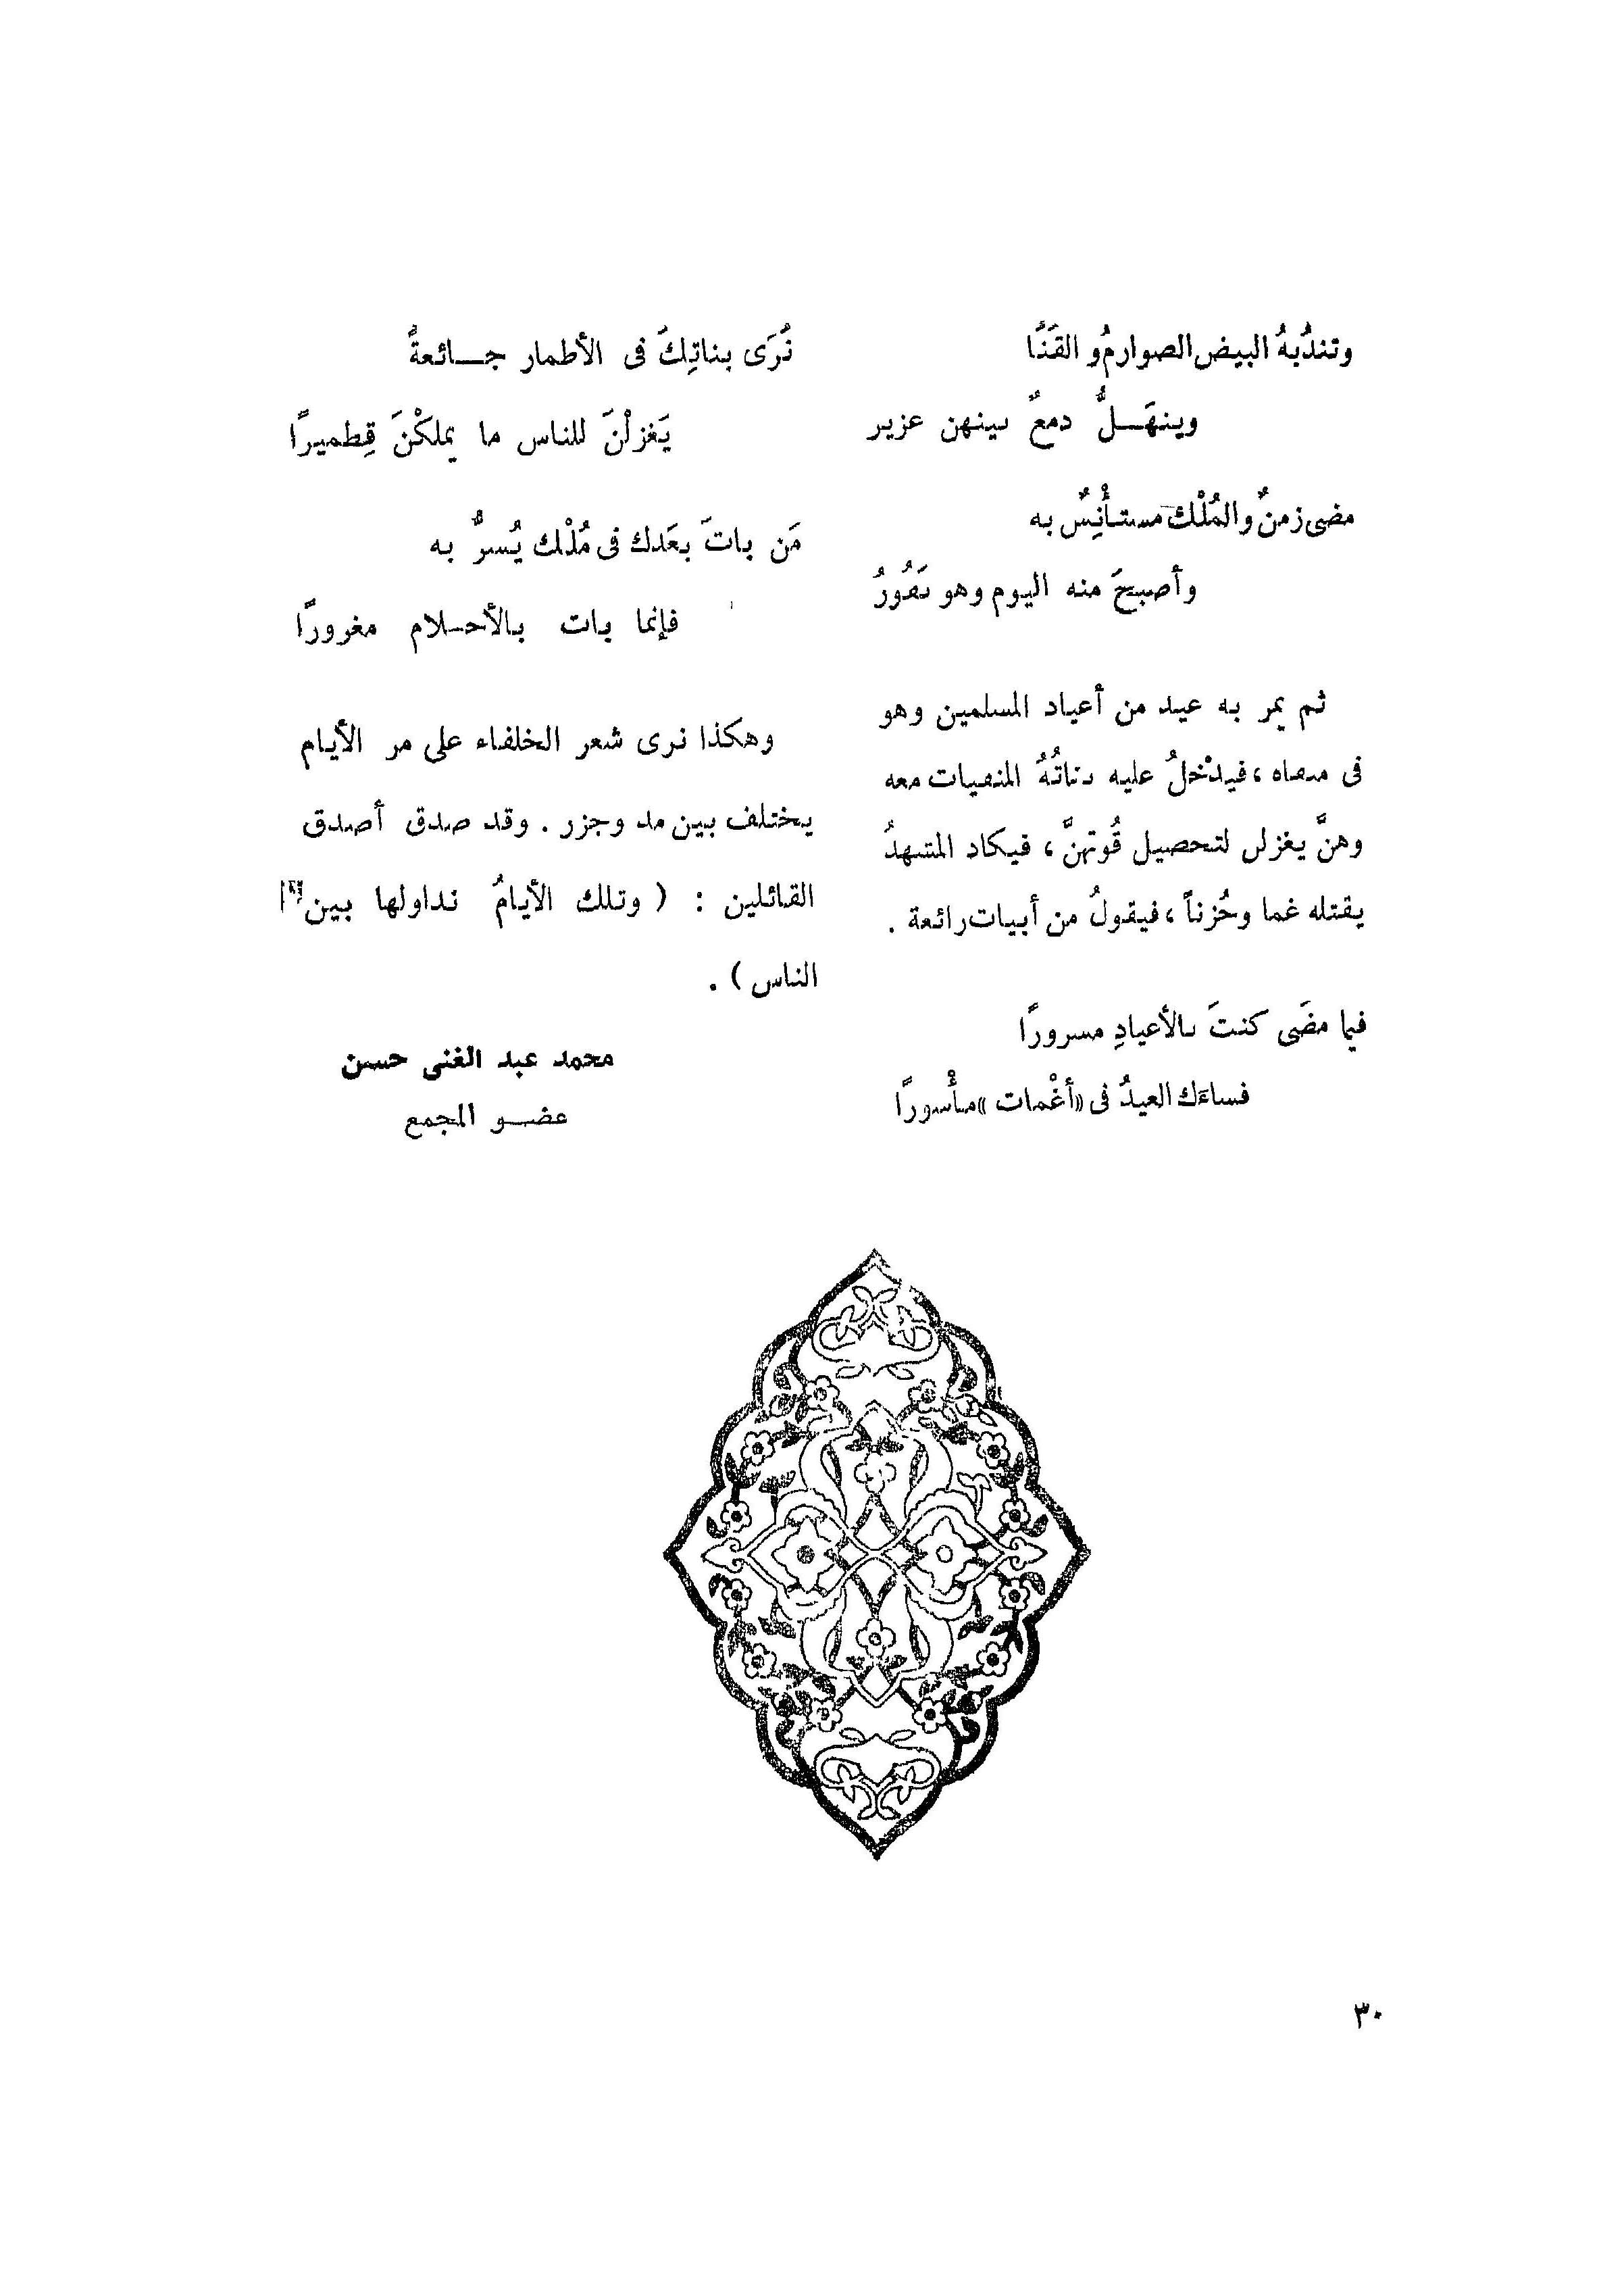 وتندُبهُ البيض الصوارمُ و القَنَا
وينهَـلُّ دمعٌ بينهن غزير
مضى زمنٌ والمُلْك مستأْنِسٌ به
وأصبحَ منه اليوم وهو نَفُورُ
ثم يمر به عيد من أعياد المسلمين وهو
فى منفاه ، فيدْخلُ عليه بناتُهُ المنفيات معه
وهنَّ يغزلن لتحصيل قُوتهنَّ ، فيكاد المشهدُ
يقتله غما وحُزناً ، فيقولُ من أبيات رائعة .
فيما مضَى كنتَ بالأعيادِ مسرورًا
فساءَك العيدُ فى «أغْمات» مأْسورًا
تُرَى بناتِكَ فى الأطمار جـائعةً
يَغزلْنَ للناس ما يملكْنَ قِطميرًا
مَن باتَ بعَدك فى مُلْك يُسرُّ به
فإنما بات بالأحـلام مغرورًا
وهكذا نرى شعر الخلفاء على مر الأيام
يختلف بين مد وجزر . وقد صدق أصدق
القائلين : ( وتلك الأيامُ نداولها بين
الناس ) .
محمد عبد الغنى حسن
عضـو المجمع
٣٠